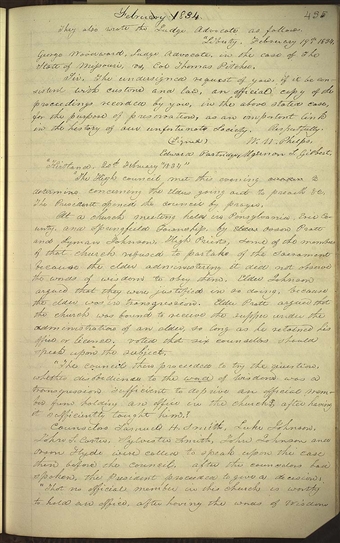 February 1834.
435
They also wrote the Judge Advocate as follows:
Liberty, February 19th 1834.
George Woodward, Judge Advocate, in the case of the
State of Missouri, vs, Col Thomas Pitcher.
Sir, The undersigned request of you, if it is con-
sistent with custom and law, an official copy of the
proceedings recorded by you, in the above stated case,
for the purpose of preservation, as an important link
in the history of our unfortunate Society. Respectfully.
(Signed) W. W. Phelps.
Edward Partridge, A. S. Gilbert.
"Kirtland. 20th February 1834"
The High council met this evening
determine concerning the Elders going out to preach &c.
The President opened the council by prayer.
At a church meeting held in Pensylvania, Erie Coun-
ty, and Springfield Township, by Elders Orson Pratt
and Lyman Johnson, High Priests, some of the members
of that church refused to partake of the Sacrament
because the Elder administering it did not observe
the words of wisdom to obey them. Elder Johnson
argued that they were justified in so doing, because
the elder was in transgression. Elder Pratt argued that
the church was bound to receive the supper under the
administration of an elder, so long as he retained his
office or licence, voted that six counsellors should
speak upon the subject.
"The council then proceeded to try the question,
whether disobedience to the word of wisdom was a
transgression sufficient to deprive an official mem-
ber from holding an office in the church, after having
it sufficiently taught him?
Counsellors Samuel H. Smith, Luke Johnson,
John S. Carter, Sylvester Smith, John Johnson and
Orson Hyde were called to speak upon the case
then before the council, after the counsellors had
spoken, the President proceeded to give a decision:
"That no official member in this church is worthy
to hold an office, after having the words of wisdom